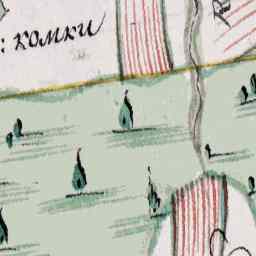 : комки